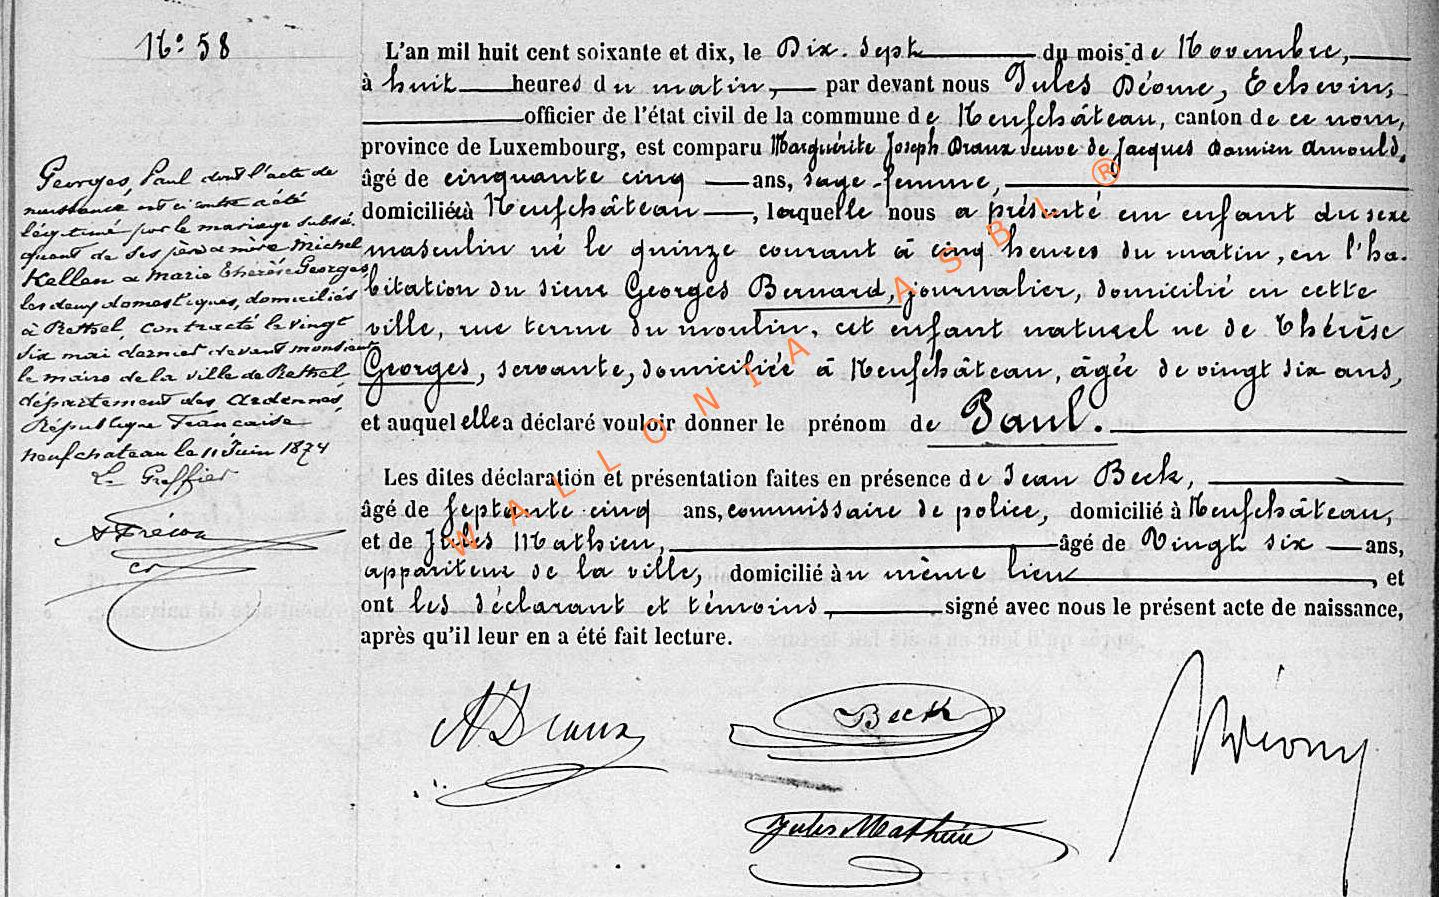 N° 58
L'an mil huit cent soixante et dix, le Dix-sept du mois de Novembre,
à huit heures du matin, par devant nous Jules Déome, Echevin,
officier de l'état civil de la commune de Neufchâteau, canton de ce nom,
province de Luxembourg, est comparu Marguérite Joseph Draux veuve de Jacques Damien Arnould,
âgé de cinquante cinq ans, sage-femme,
domiciliée à Neufchâteau, laquelle nous a présenté un enfant du sexe
masculin né le quinze courant à cinq heures du matin, en l'ha-
bitation du sieur Georges Bernard, journalier, domicilié en cette
ville, rue terme du moulin, cet enfant naturel né de Thérèse
Georges, servante, domiciliée à Neufchâteau, âgée de vingt six ans,
et auquel elle a déclaré vouloir donner le prénom de Paul.
Les dites déclaration et présentation faites en présence de Jean Beck,
âgé de septante cinq ans, commissaire de police, domicilié à Neufchâteau,
et de Jules Mathieu, âgé de Vingt six ans,
appariteur de la ville, domicilié au même lieu, et
ont les déclarant et témoins, signé avec nous le présent acte de naissance,
après qu'il leur en a été fait lecture.
Georges, Paul dont l'acte de
naissance est ci contre a été
légitimé par le mariage subsé-
quent de ses père & mère Michel
Kellen & Marie Thérèse Georges
les deux domestiques, domiciliés
à Rethel, contracté le vingt
six mai dernier devant monsieur
le maire de la ville de Rethel
département des Ardennes,
République Française
Neufchateau le 11 Juin 1874
Le Greffier
Draux
Beck
Jules Mathieu
WALLONIA ASBL ®